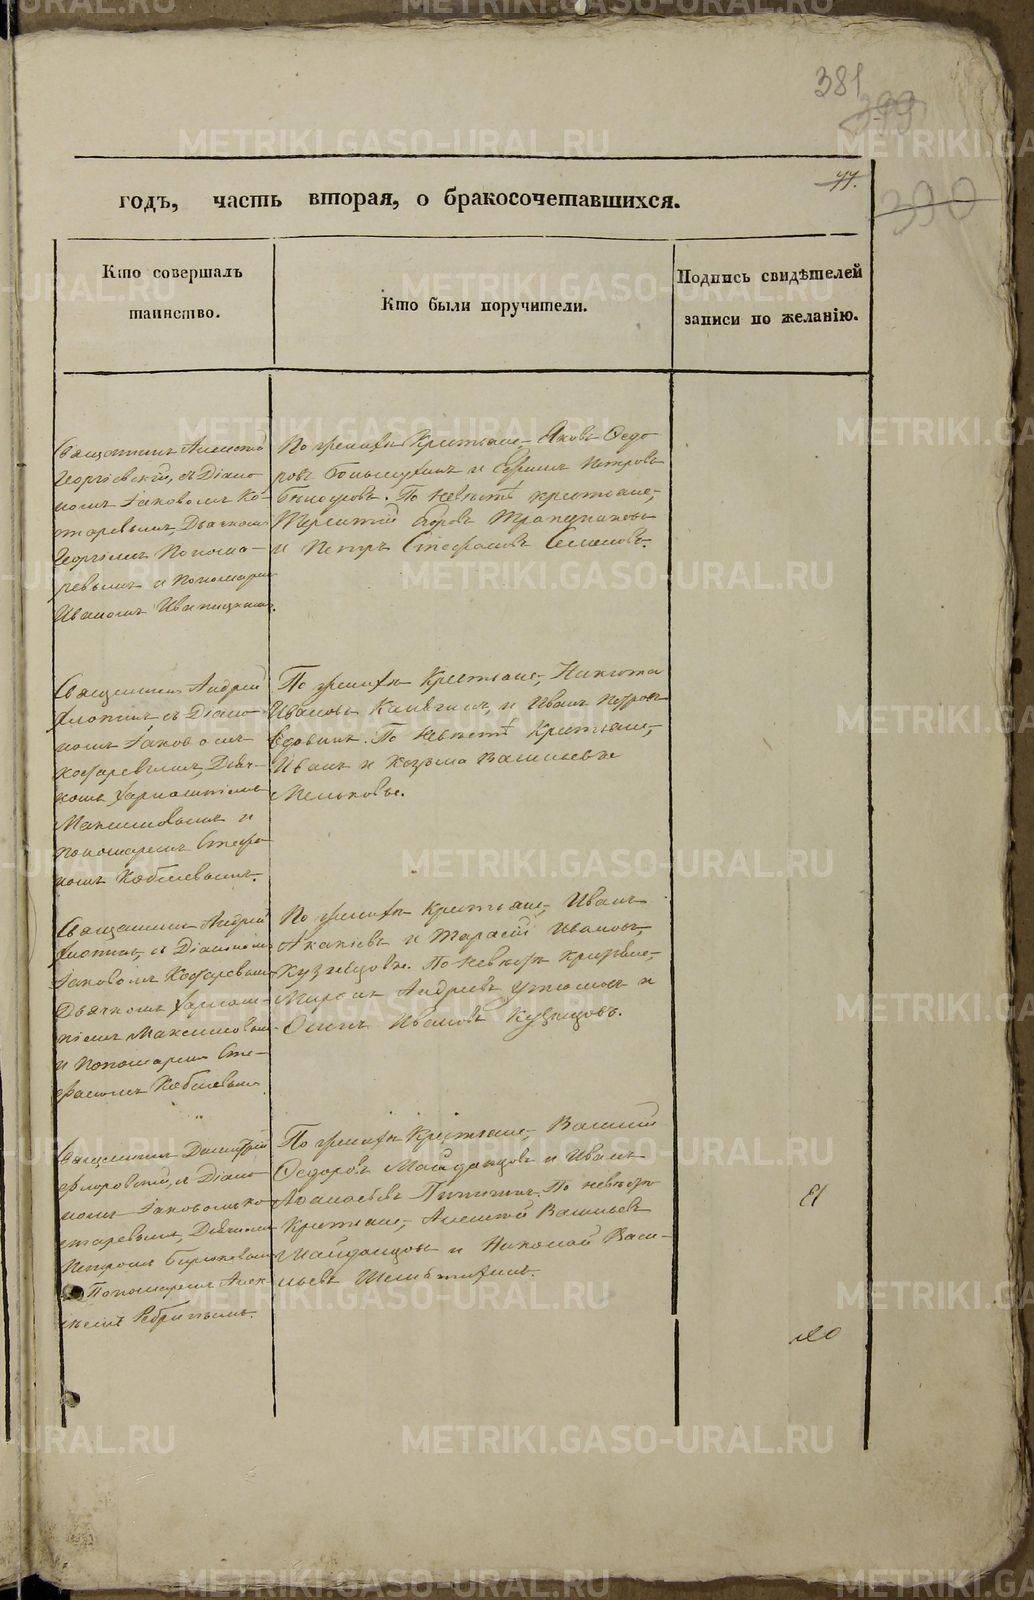 381
399
77.
390
годъ, часть вторая, о бракосочетавшихся.
Кто совершалъ
таинство.
Кто были поручители.
Подпись свидѣтелей
записи по желанію.
Священникъ Алексѣй
Георгіевскій, съ Діако
номъ Іаковомъ Ко-
старевымъ, Дьячкомъ
Георгіемъ Понома-
ревымъ и Пономаремъ
Иваномъ
По женихѣ Крестьяне, Яковъ Ѳедо
ровъ и Ефимъ Петровъ
По невѣстѣ крестьяне,
Терентій Егоровъ Трапезниковъ
и Петръ Стефановъ Семеновъ.
Священникъ Андрей
съ Діако
номъ Іаковомъ
Костаревымъ, Дьяч-
комъ Харлампіемъ
Максимовымъ и
пономаремъ Стефа
номъ Кобелевымъ.
По женихѣ Крестьяне, Никита
Ивановъ и Иванъ Петровъ
Вдовинъ. По Невѣстѣ Крестьяне,
Иванъ и Козьма Васильевы
Мельковы.
Священникъ Андрей
съ Діакономъ
Іаковомъ Костаревымъ
Дьячкомъ Харлам-
піемъ Максимовымъ
и Пономаремъ Сте-
фаномъ Кобелевымъ
По женихѣ Крестьяне, Иванъ
Акакіевъ и Тарасій Ивановъ
Кузнецовы. По Невѣстѣ Крестьяне,
Миронъ Андреевъ и
Осипъ Ивановъ Кузнецовъ.
Священникъ Димитрій
Флоровскій, съ Діако
номъ Іаковомъ Ко
старевымъ, Дьячкомъ
Петромъ Бирюковымъ
и Пономаремъ Алек
сѣемъ
По женихѣ Крестьяне, Василій
Ѳедоровъ Майданцовъ и Иванъ
Аѳанасьевъ По невѣстѣ
Крестьяне, Алексѣй Васильевъ
Майданцовъ и Николай Васи-
льевъ
METRIKI.GASO-URAL.RU